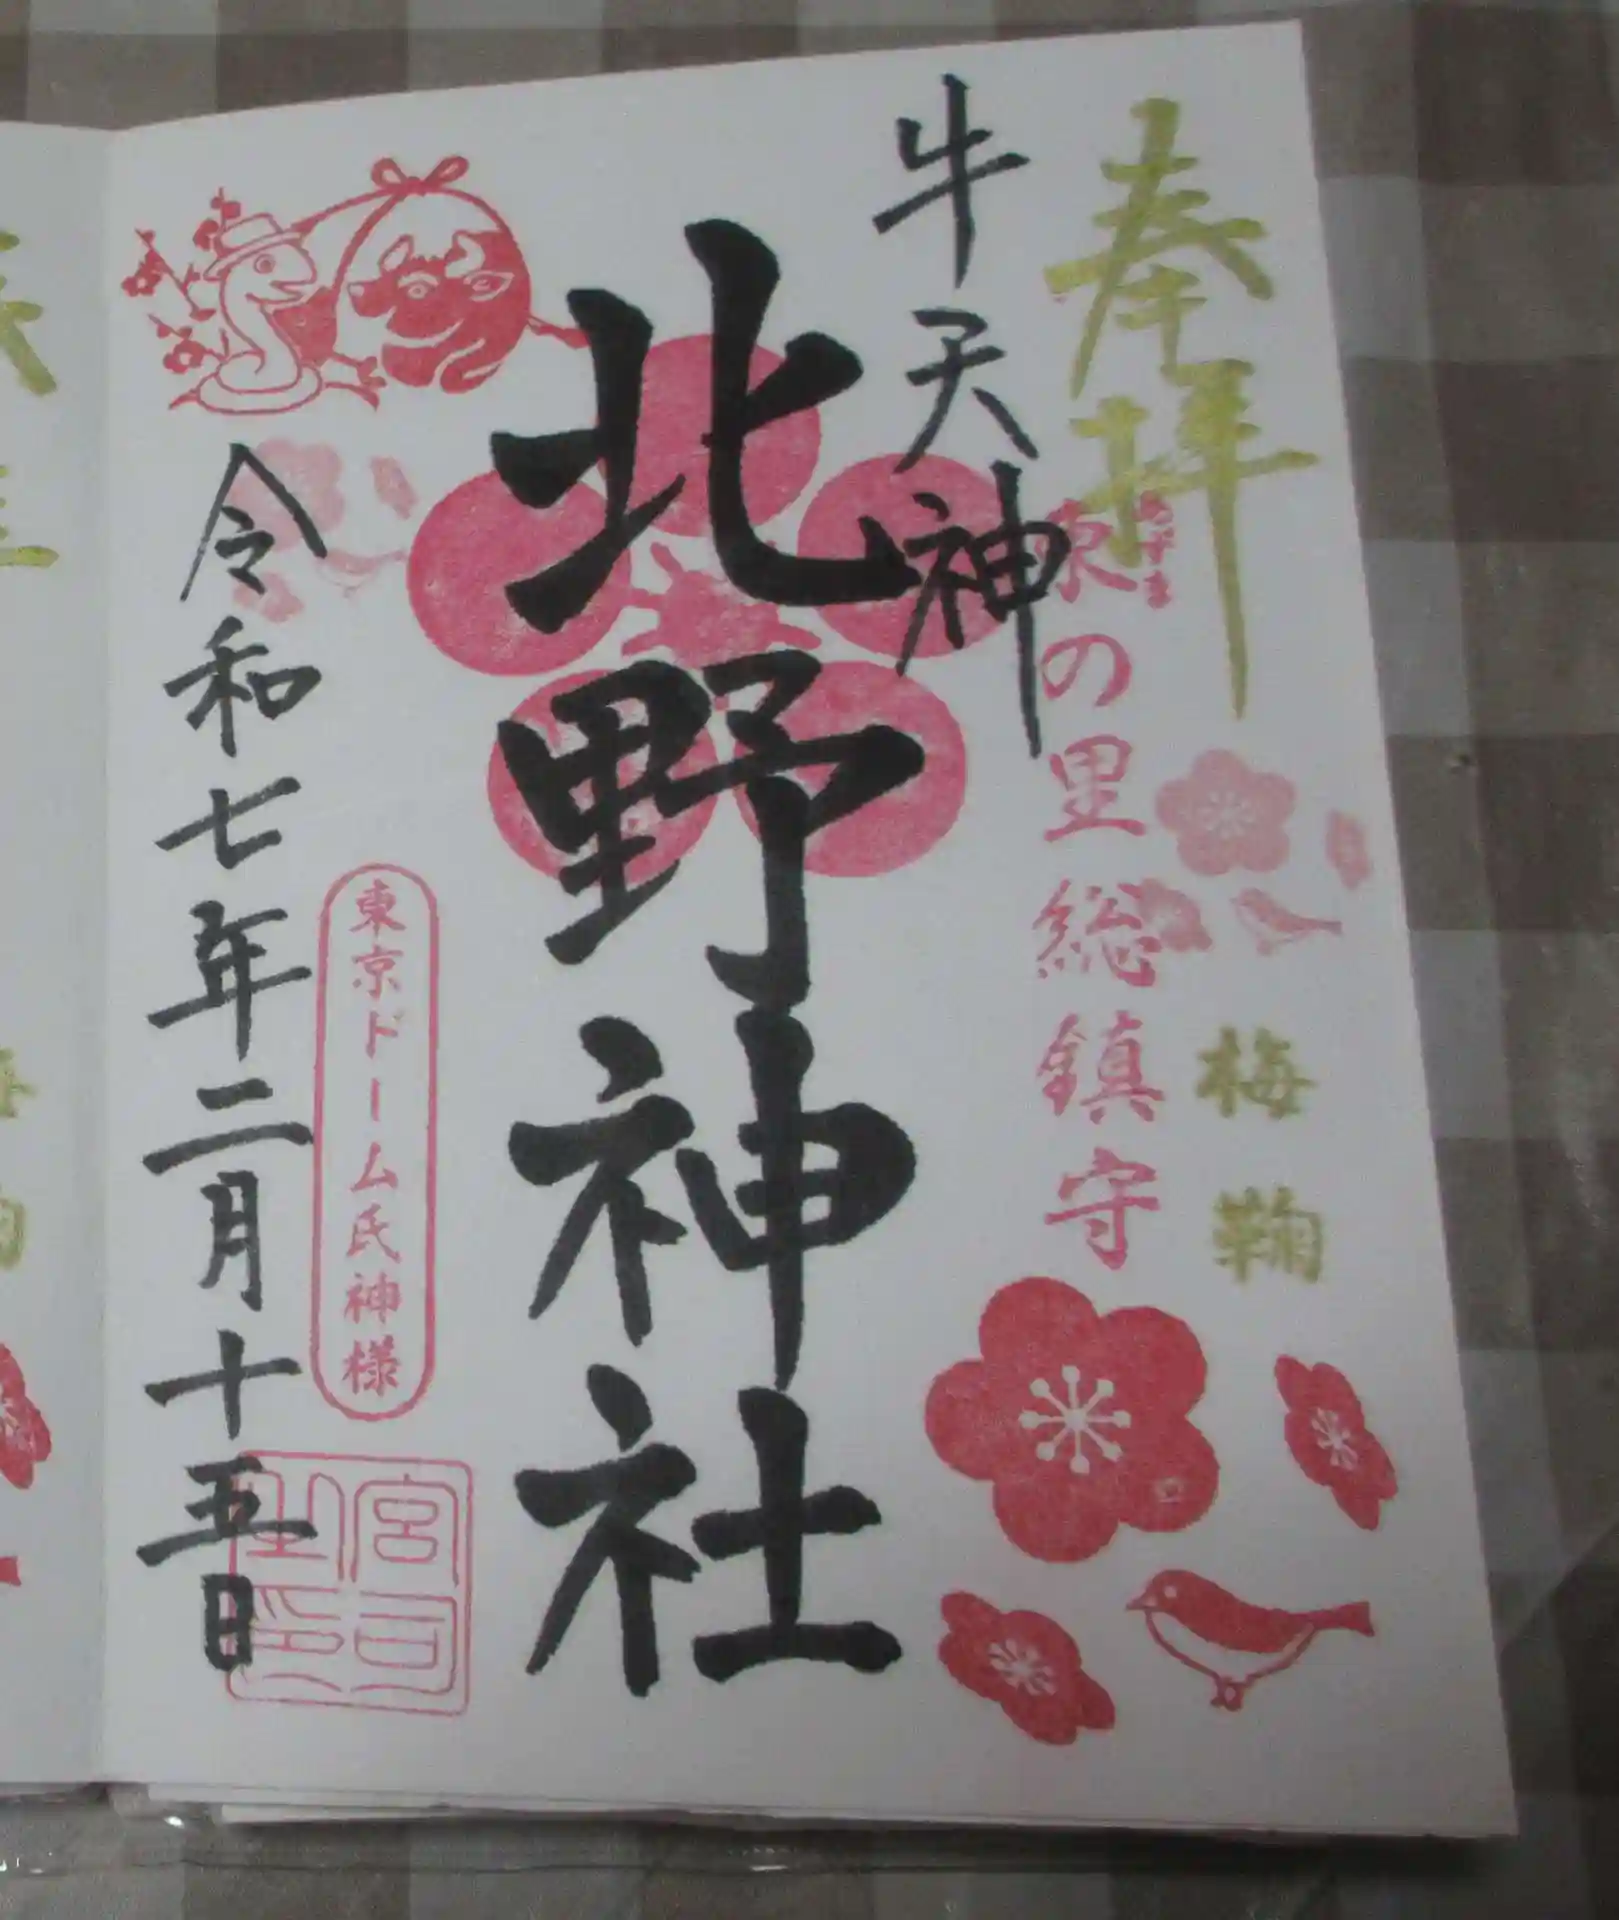 奉拝
梅鞠
東の里総鎮守
あずま
牛天神
北野神社
東京ドーム氏神様
宮司之印
令和七年二月十五日